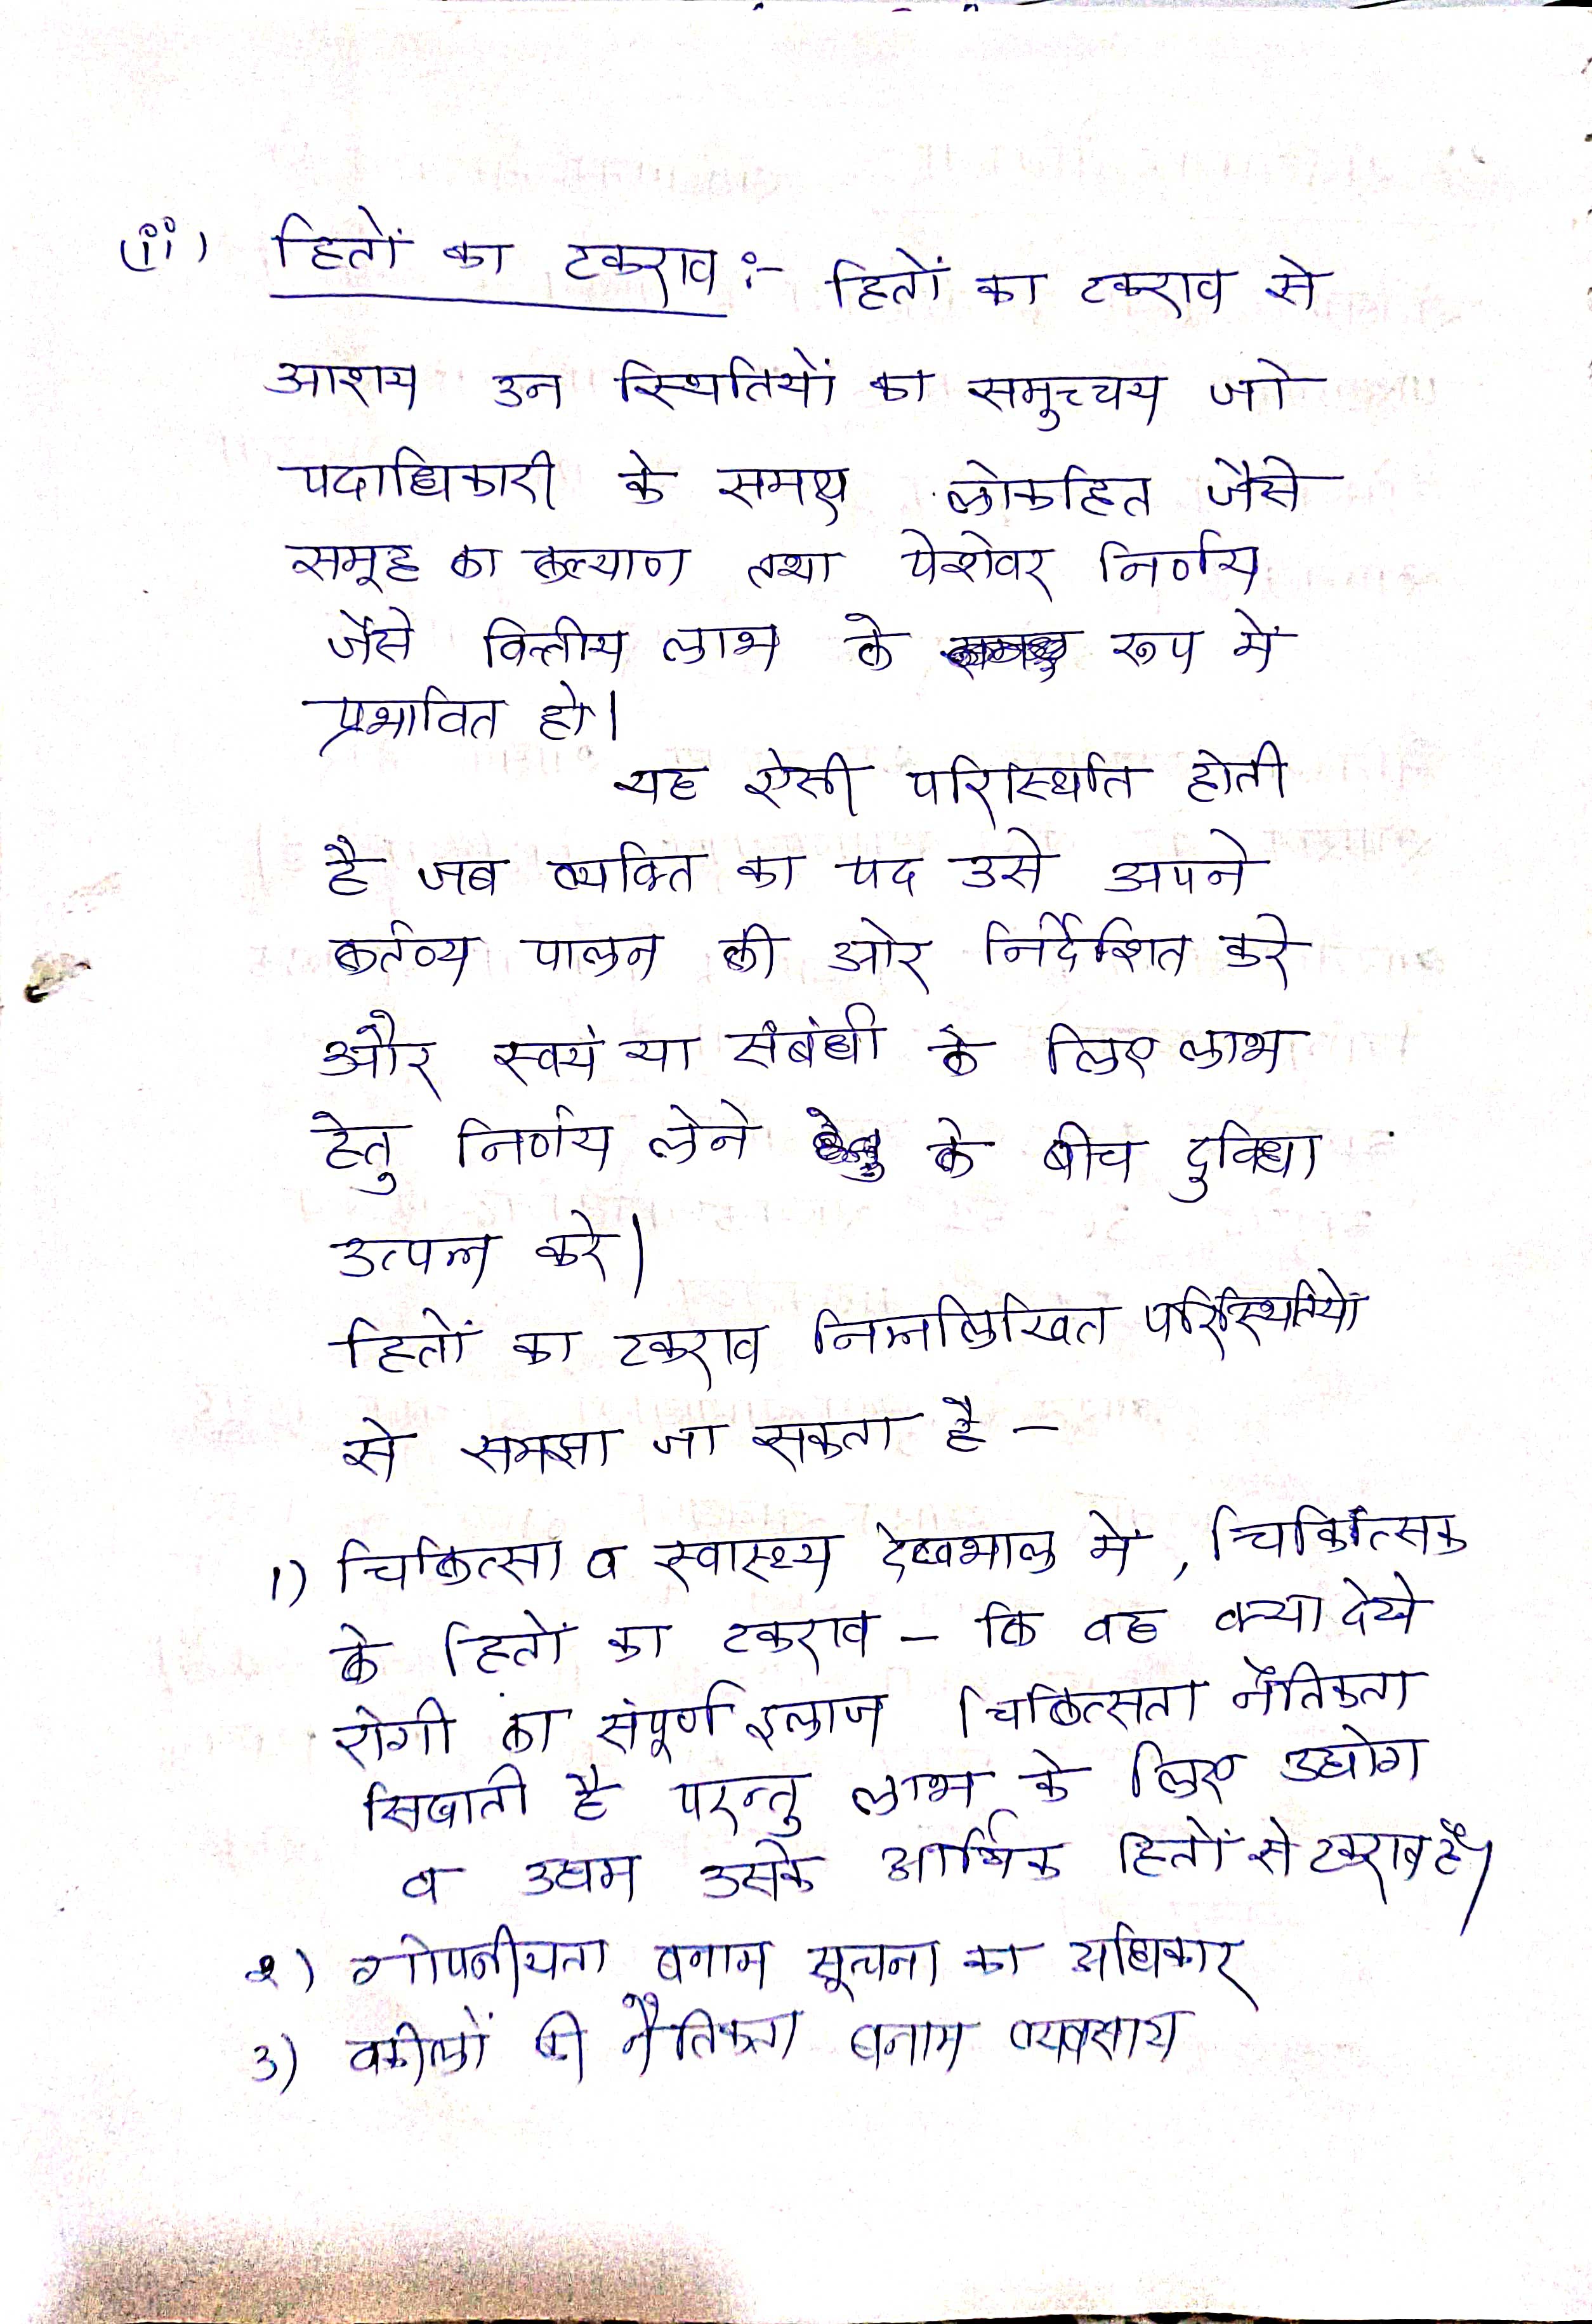 (ii) हितों का टकराव :- हितों का टकराव से
आशय उन स्थितियों का समुच्चय जो
पदाधिकारी के समक्ष लोकहित जैसे
समूह का कल्याण तथा पेशेवर निर्णय
जैसे वित्तीय लाभ के रूप में
प्रभावित हो।
यह ऐसी परिस्थिति होती
है जब व्यक्ति का पद उसे अपने
कर्तव्य पालन की ओर निर्देशित करे
और स्वयं या संबंधी के लिए लाभ
हेतु निर्णय लेने के बीच दुविधा
उत्पन्न करे।
हितों का टकराव निम्नलिखित परिस्थितियों
से समझा जा सकता है -
1) चिकित्सा व स्वास्थ्य देखभाल में, चिकित्सक
के हितों का टकराव - कि वह क्या देखे
रोगी का संपूर्ण इलाज चिकित्सता नैतिकता
सिखाती है परन्तु लाभ के लिए उद्योग
व उद्यम उसके आर्थिक हितों से टकराव है।
2) गोपनीयता बनाम सूचना का अधिकार
3) वकीलों की नैतिकता बनाम व्यवसाय